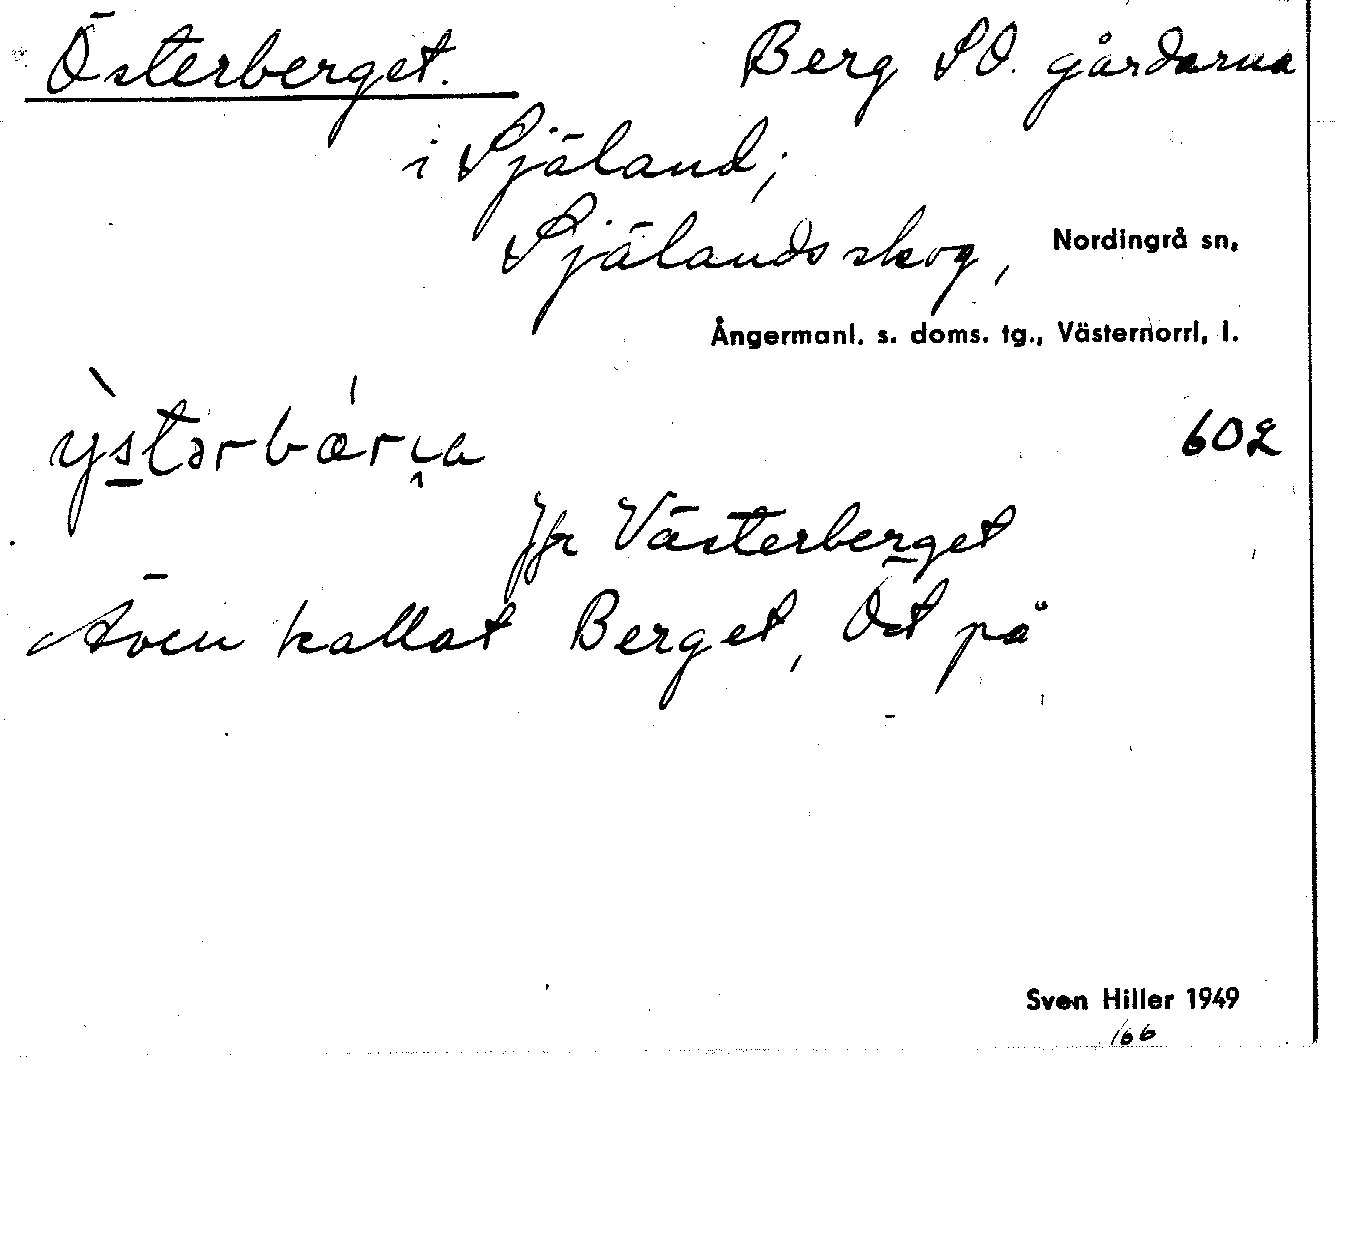 Österberget. Berg SO. gårdarna
i Själand;
Själandsskog, Nordingrå sn,
Ångermanl. s. doms. tg., Västernorrl, l.
602
Jfr Västerberget
Även kallat Berget, Öst på
Sven Hiller 1949
166